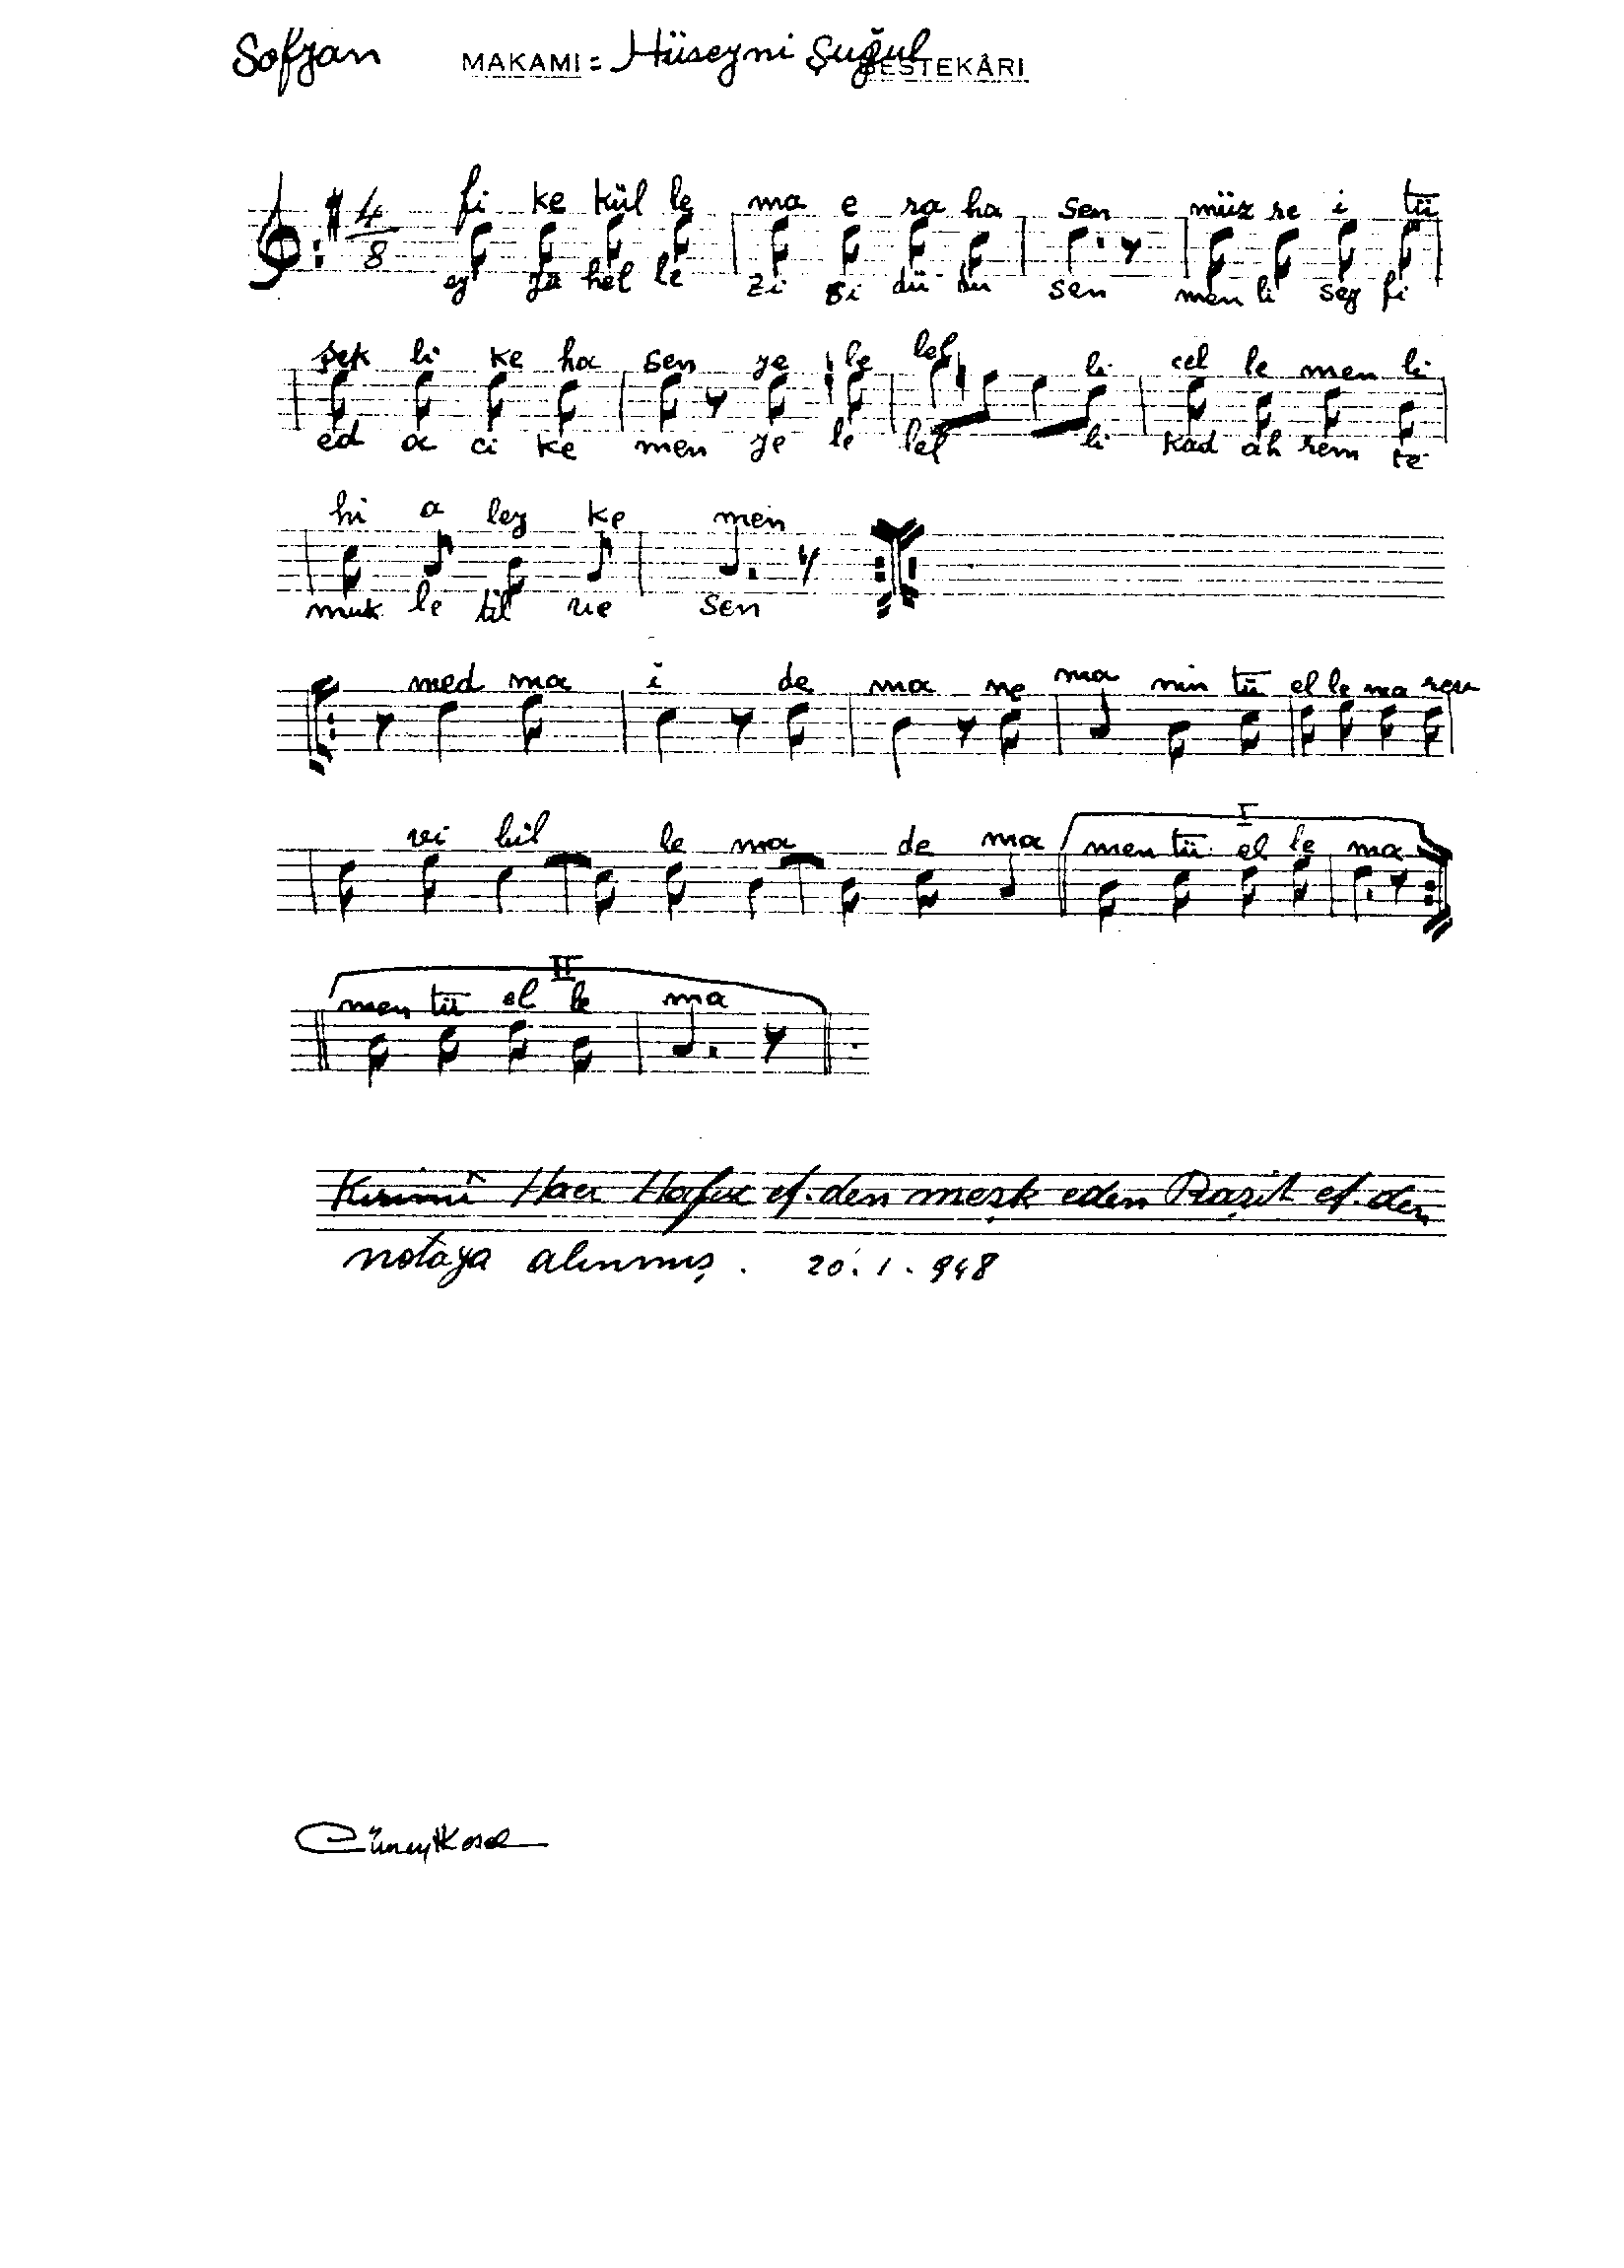 Sofyan MAKAMI : Hüseyni Şuğul BESTEKÂRI
4 8
fi ke kül le ma e ra ha sen müz re i tü
ey ya hel le zi bi dü du sen men li sey fi
şek li ke ha sen ye le lel li cel le men li
ed a ci ke men ye le lel li kad ah rem te
hi a ley ke men
muk le til ve sen
med ma i de ma ne ma nin tü el le ma rev
I
vi hil le ma de ma men tü el le ma
II
men tü el le ma
Kırımî Hacı Hafız ef. den meşk eden Raşit ef. den
notaya alınmış . 20.1.948
Cüneyt Kosal